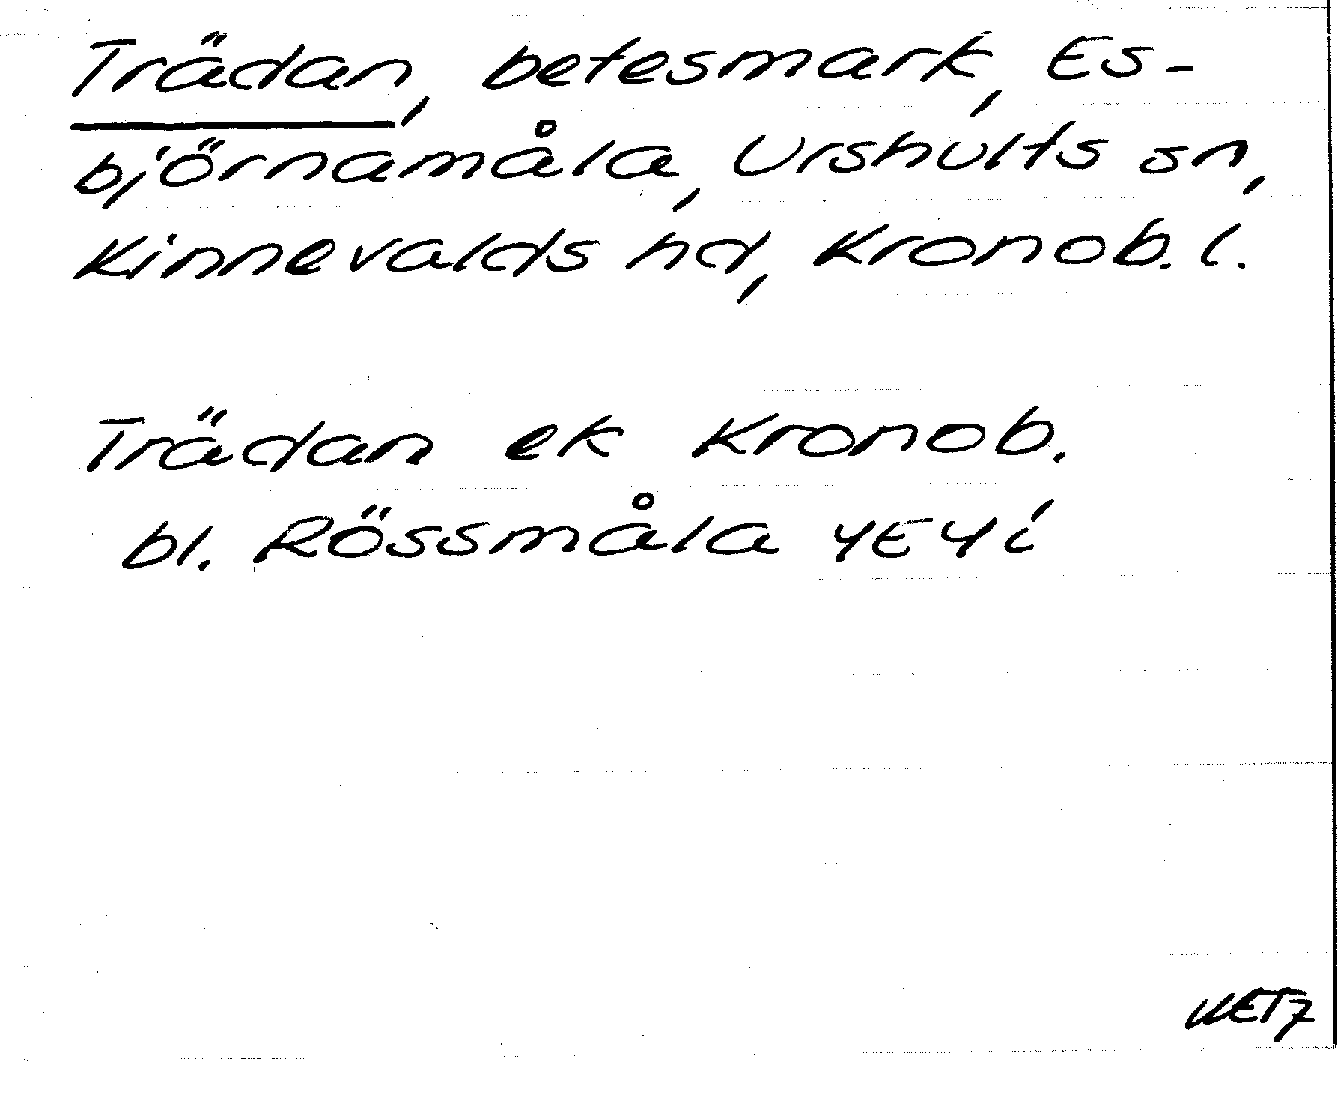 Trädan, betesmark, Es-
björnamåla, Urshults sn,
Kinnevalds hd, Kronob. l.
Trädan ek Kronob.
bl. Rössmåla 4E4i